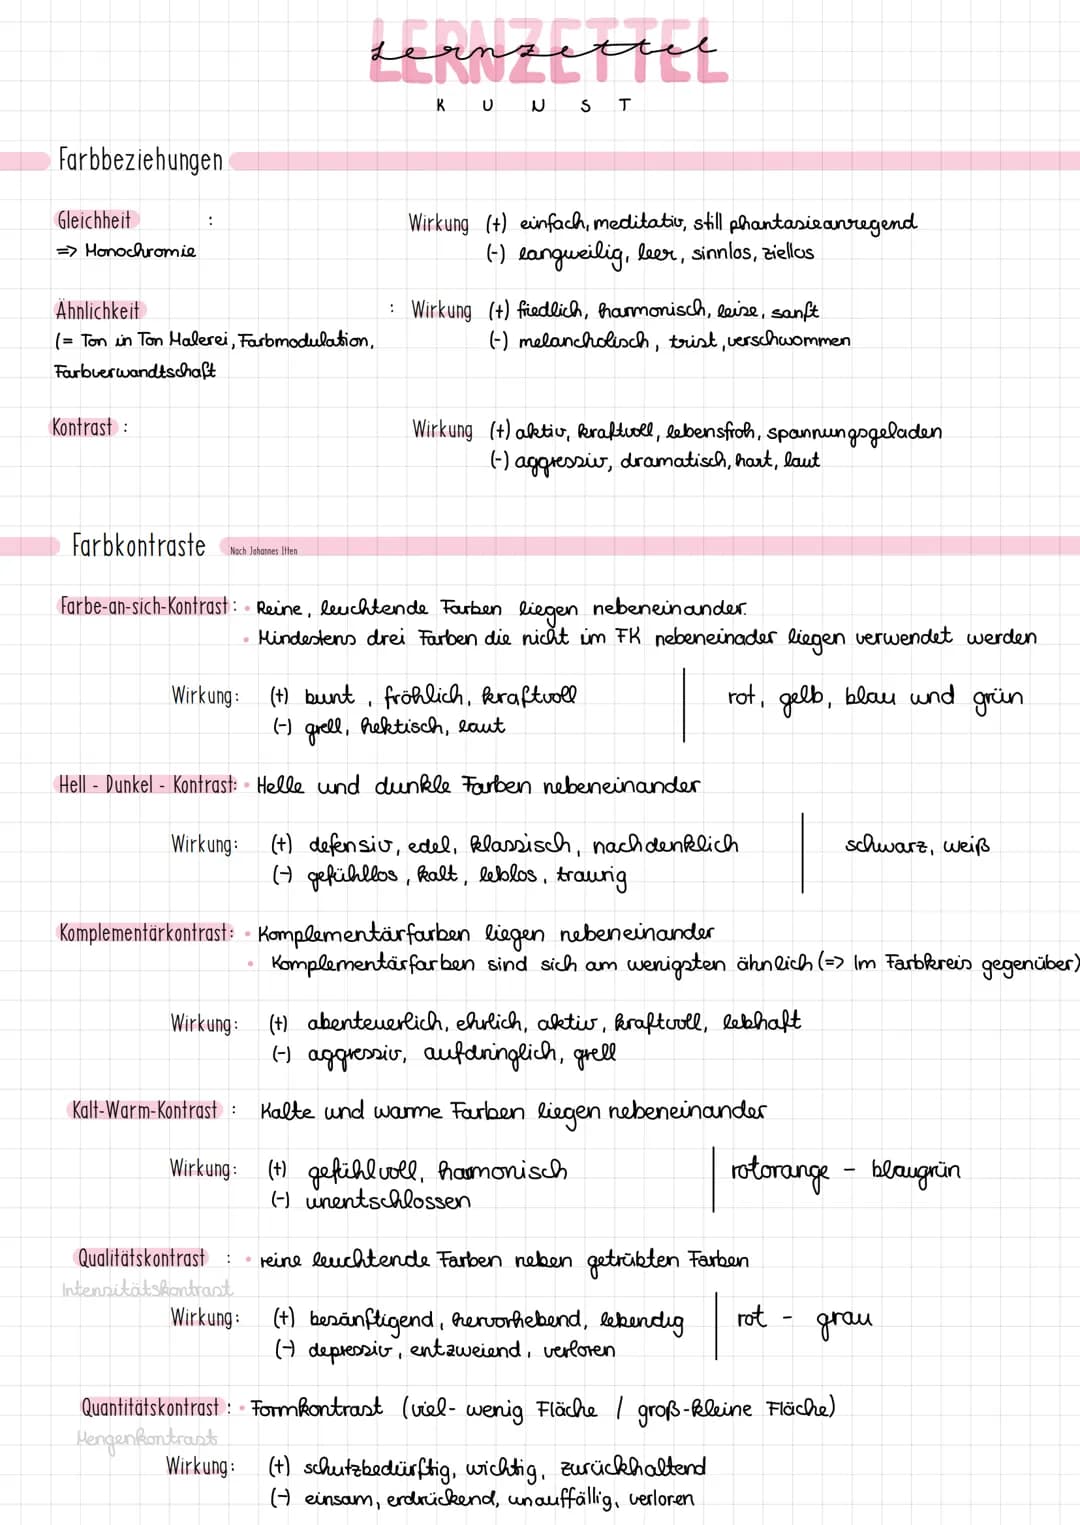 LERNZETTEL
Lernzettel
KUNST
Farbbeziehungen
Gleichheit : Wirkung (+) einfach, meditativ, still phantasieanregend
=> Monochromie (-) langweilig, leer, sinnlos, ziellos
Ähnlichkeit : Wirkung (+) fiedlich, harmonisch, leise, sanft
(= Ton in Ton Malerei, Farbmodulation, (-) melancholisch, trist, verschwommen
Farbverwandtschaft
Kontrast : Wirkung (+) aktiv, kraftvoll, lebensfroh, spannungsgeladen
(-) aggressiv, dramatisch, hart, laut
Farbkontraste Nach Johannes Itten
Farbe-an-sich-Kontrast : • Reine, leuchtende Farben liegen nebeneinander.
• Mindestens drei Farben die nicht im FK nebeneinader liegen verwendet werden
Wirkung: (+) bunt, fröhlich, kraftvoll | rot, gelb, blau und grün
(-) grell, hektisch, laut
Hell - Dunkel - Kontrast: • Helle und dunkle Farben nebeneinander
Wirkung: (+) defensiv, edel, klassisch, nachdenklich | schwarz, weiß
(-) gefühllos, kalt, leblos, traurig
Komplementärkontrast: • Komplementärfarben liegen nebeneinander
• Komplementärfarben sind sich am wenigsten ähnlich (=> Im Farbkreis gegenüber)
Wirkung: (+) abenteuerlich, ehrlich, aktiv, kraftvoll, lebhaft
(-) aggressiv, aufdringlich, grell
Kalt-Warm-Kontrast : Kalte und warme Farben liegen nebeneinander
Wirkung: (+) gefühlvoll, harmonisch | rotorange - blaugrün
(-) unentschlossen
Qualitätskontrast : • reine leuchtende Farben neben getrübten Farben
Intensitätskontrast
Wirkung: (+) besänftigend, hervorhebend, lebendig | rot - grau
(-) depressiv, entzweiend, verloren
Quantitätskontrast : • Formkontrast (viel- wenig Fläche / groß-kleine Fläche)
Mengenkontrast
Wirkung: (+) schutzbedürftig, wichtig, zurückhaltend
(-) einsam, erdrückend, unauffällig, verloren